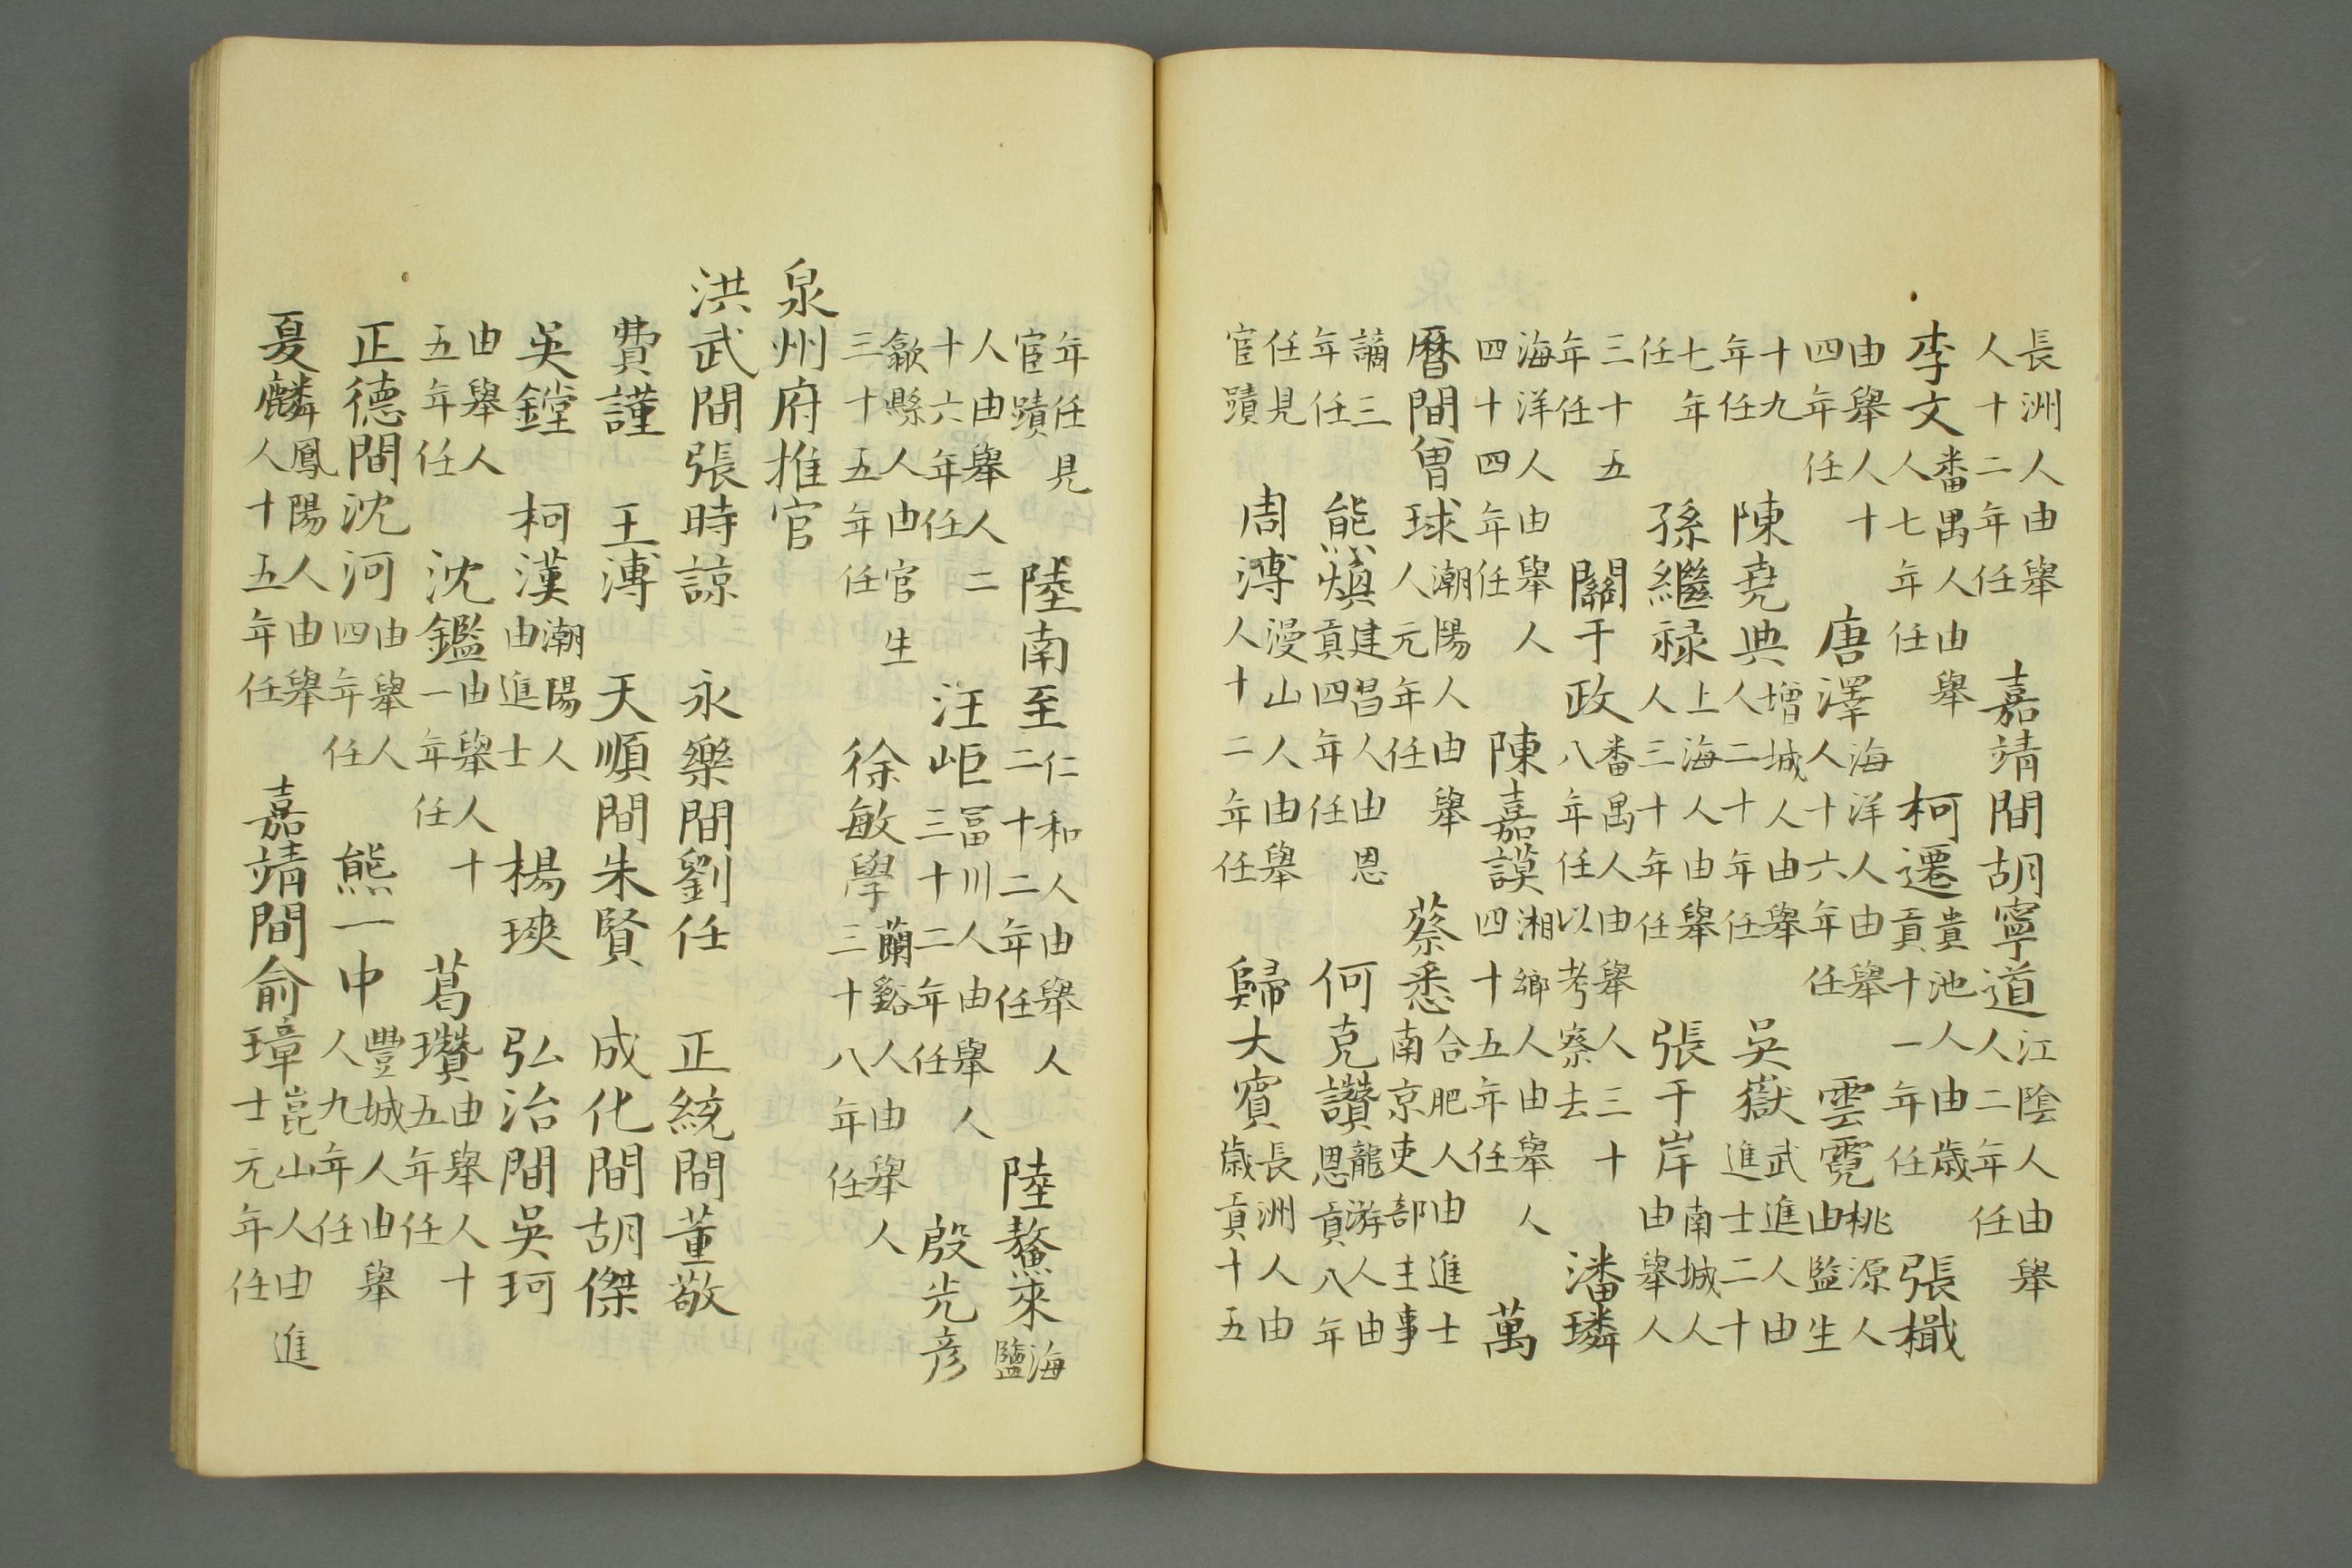 長洲人由舉人十二年任 嘉靖間胡寧道江陰人由舉人二年任
李文番禺人由舉人七年任 柯遷貴池人由歲貢十一年任 張檝
由舉人十四年任 唐澤海洋人由舉人十六年任 雲霓桃源人由監生
十九年任 陳堯典增城人由舉人二十年任 吳嶽武進人由進士二十
七年任 孫繼祿上海人由舉人三十年任 張于岸南城人由舉人
三十五年任 關于政番禺人由舉人三十八年任以考察去 潘璘
海洋人由舉人四十四年任 陳嘉謨湘鄉人由舉人四十五年任 萬
曆間曾球潮陽人由舉人元年任 蔡悉合肥人由進士南京吏部主事
謫三年任 熊煥建昌人由恩貢四年任 何克讚龍游人由恩貢八年
任見宦蹟 周溥漫山人由舉人十二年任 歸大賓長洲人由歲貢十五
年任見宦蹟 陸南至仁和人由舉人二十二年任 陸鰲來海鹽
人由舉人二十六年任 汪岠富川人由舉人三十二年任 殷光彥
歙縣人由官生三十五年任 徐敏學蘭谿人由舉人三十八年任
泉州府推官
洪武間張時諒 永樂間劉任 正統間董敬
費謹 王溥 天順間朱賢 成化間胡傑
吳鏜 柯漢潮陽人由進士 楊 弘治間吳珂
由舉人五年任 沈鑑由舉人十一年任 葛瓚由舉人十五年任
正德間沈河由舉人四年任 熊一中豐城人由舉人九年任
夏麟鳳陽人由舉人十五年任 嘉靖間俞璋崑山人由進士元年任